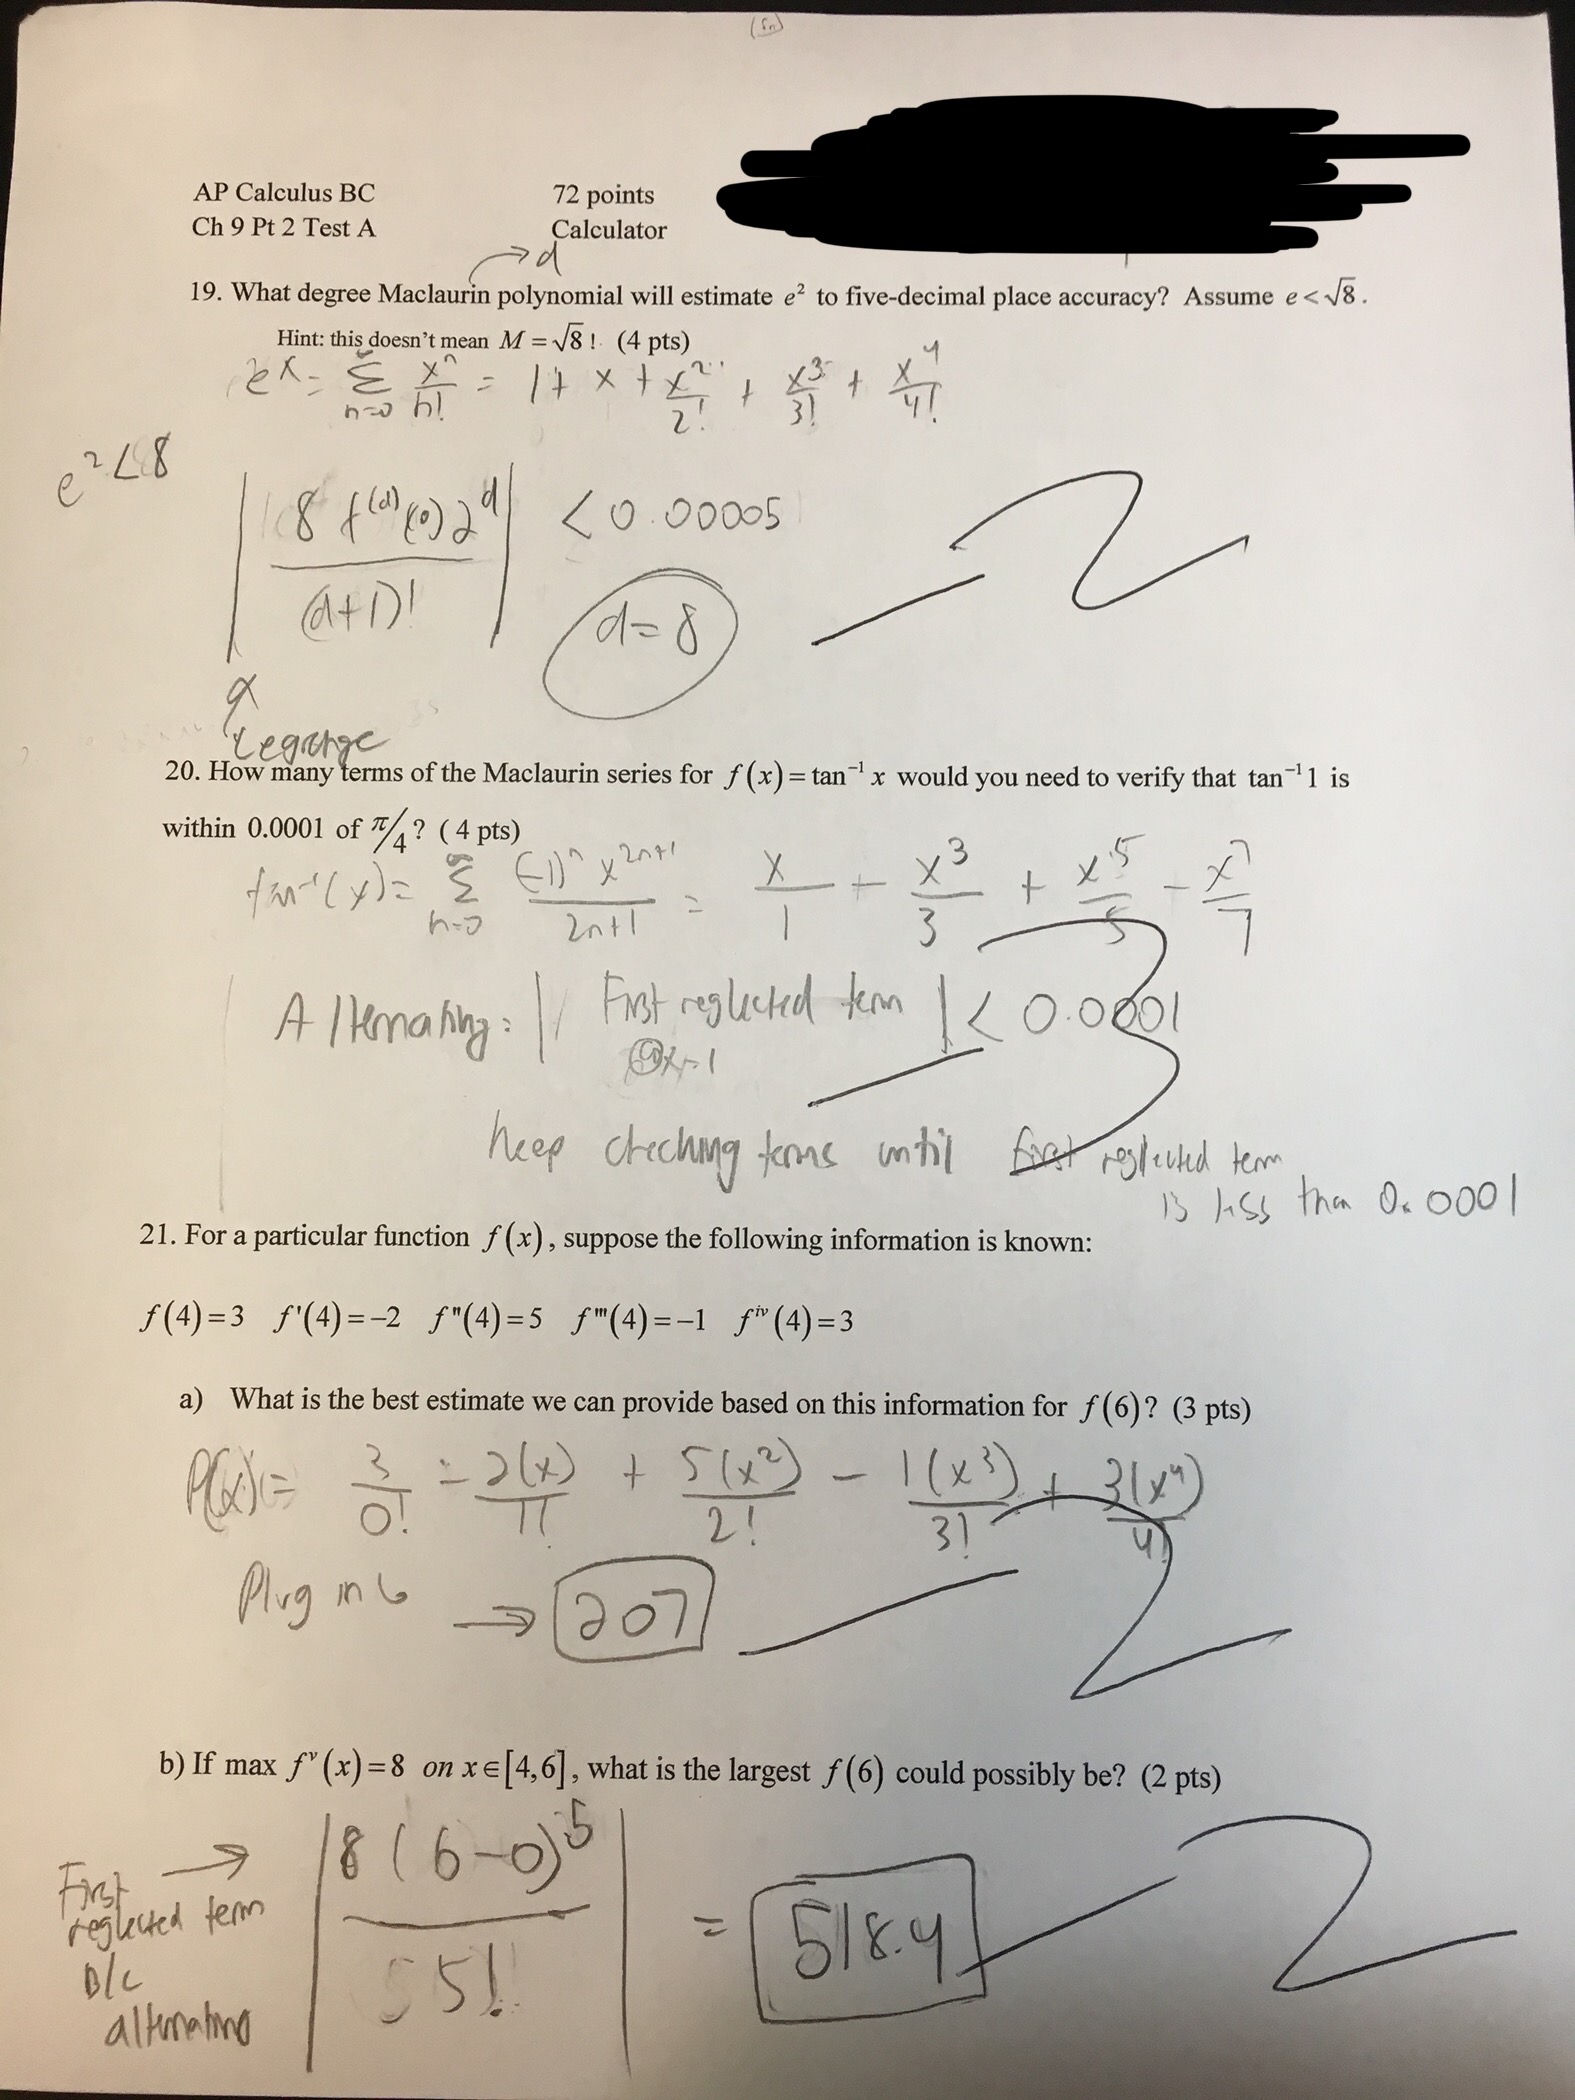 (5n)
AP Calculus BC
72 points
Ch 9 Pt 2 Test A
Calculator
→ d
19. What degree Maclaurin polynomial will estimate e² to five-decimal place accuracy? Assume e < √8.
Hint: this doesn't mean M = √8 ! (4 pts)
e^x = Σ n=0 ∞ x^n/n! = 1 + x + x²/2! + x³/3! + x⁴/4!
e² < 8
| 8 f^(d)(0) 2^d / (d+1)! | < 0.00005
d = 8
-2
Legrange
20. How many terms of the Maclaurin series for f(x) = tan⁻¹ x would you need to verify that tan⁻¹ 1 is
within 0.0001 of π/4 ? ( 4 pts)
tan⁻¹(x) = Σ n=0 ∞ (-1)^n x^(2n+1) / 2n+1 = x/1 - x³/3 + x⁵/5 - x⁷/7
Alternating: | First neglected term | < 0.0001
@x=1
-3
keep checking terms until first neglected term
is less than 0.0001
21. For a particular function f(x), suppose the following information is known:
f(4) = 3 f'(4) = −2 f"(4) = 5 f'''(4) = −1 f^iv(4) = 3
a) What is the best estimate we can provide based on this information for f(6)? (3 pts)
P(x) = 3/0! - 2(x)/1! + 5(x²)/2! - 1(x³)/3! + 3(x⁴)/4!
Plug in 6 → 207
-2
b) If max f^v(x) = 8 on x∈[4,6], what is the largest f(6) could possibly be? (2 pts)
First → | 8(6-0)⁵ / 5! | = 518.4
neglected term
B/c
alternating
-2